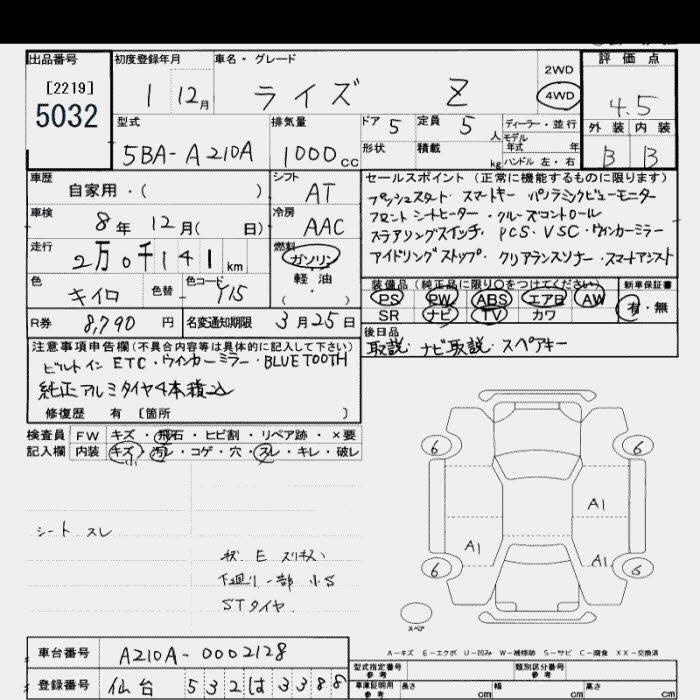 出品番号 初度登録年月 車名・グレード 2WD 評価点
[2219] 5032 1 12月 ライズ Z 4WD 4.5
型式 排気量 ドア 5 定員 5 人 ディーラー・並行 外装 内装
5BA-A210A 1000cc 形状 積載 kg モデル年式 年 ハンドル 左・右 B B
車歴 自家用・( ) シフト AT セールスポイント (正常に機能するものに限ります)
プッシュスタート・スマートキー パノラミックビューモニター
車検 8年 12月( 日) 冷房 AAC フロントシートヒーター・クルーズコントロール
ステアリングスイッチ・PCS・VSC・ウィンカーミラー
走行 2万0千141km 燃料 ガソリン 軽油 アイドリングストップ・クリアランスソナー・スマートアシスト
色 キイロ 色替 色コード Y15 装備品 (純正品に限り○をつけてください) 新車保証書
PS PW ABS エアB AW 有・無
R券 8,790円 名変通知期限 3月25日 SR ナビ TV カワ
後日品
注意事項申告欄 (不具合内容等は具体的に記入して下さい) 取説・ナビ取説・スペアキー
ビルトインETC・ウィンカーミラー・BLUETOOTH
純正アルミタイヤ4本積込
修復歴 有 [箇所 ]
検査員 FW キズ・飛石・ヒビ割・リペア跡・×要
記入欄 内装 キズ・汚レ・コゲ・穴・スレ・キレ・破レ
小
6 6
A1
シート スレ
A1 A1
下廻り一部小S
6 6
STタイヤ
スペア
A-キズ E-エクボ U-凹み W-補修跡 S-サビ C-腐食 XX-交換済
車台番号 A210A-0002128 型式指定番号 参考 類別区分番号 参考
登録番号 仙台 532 は 3388 車庫証明用 参考 長さ cm 幅 cm 高さ cm